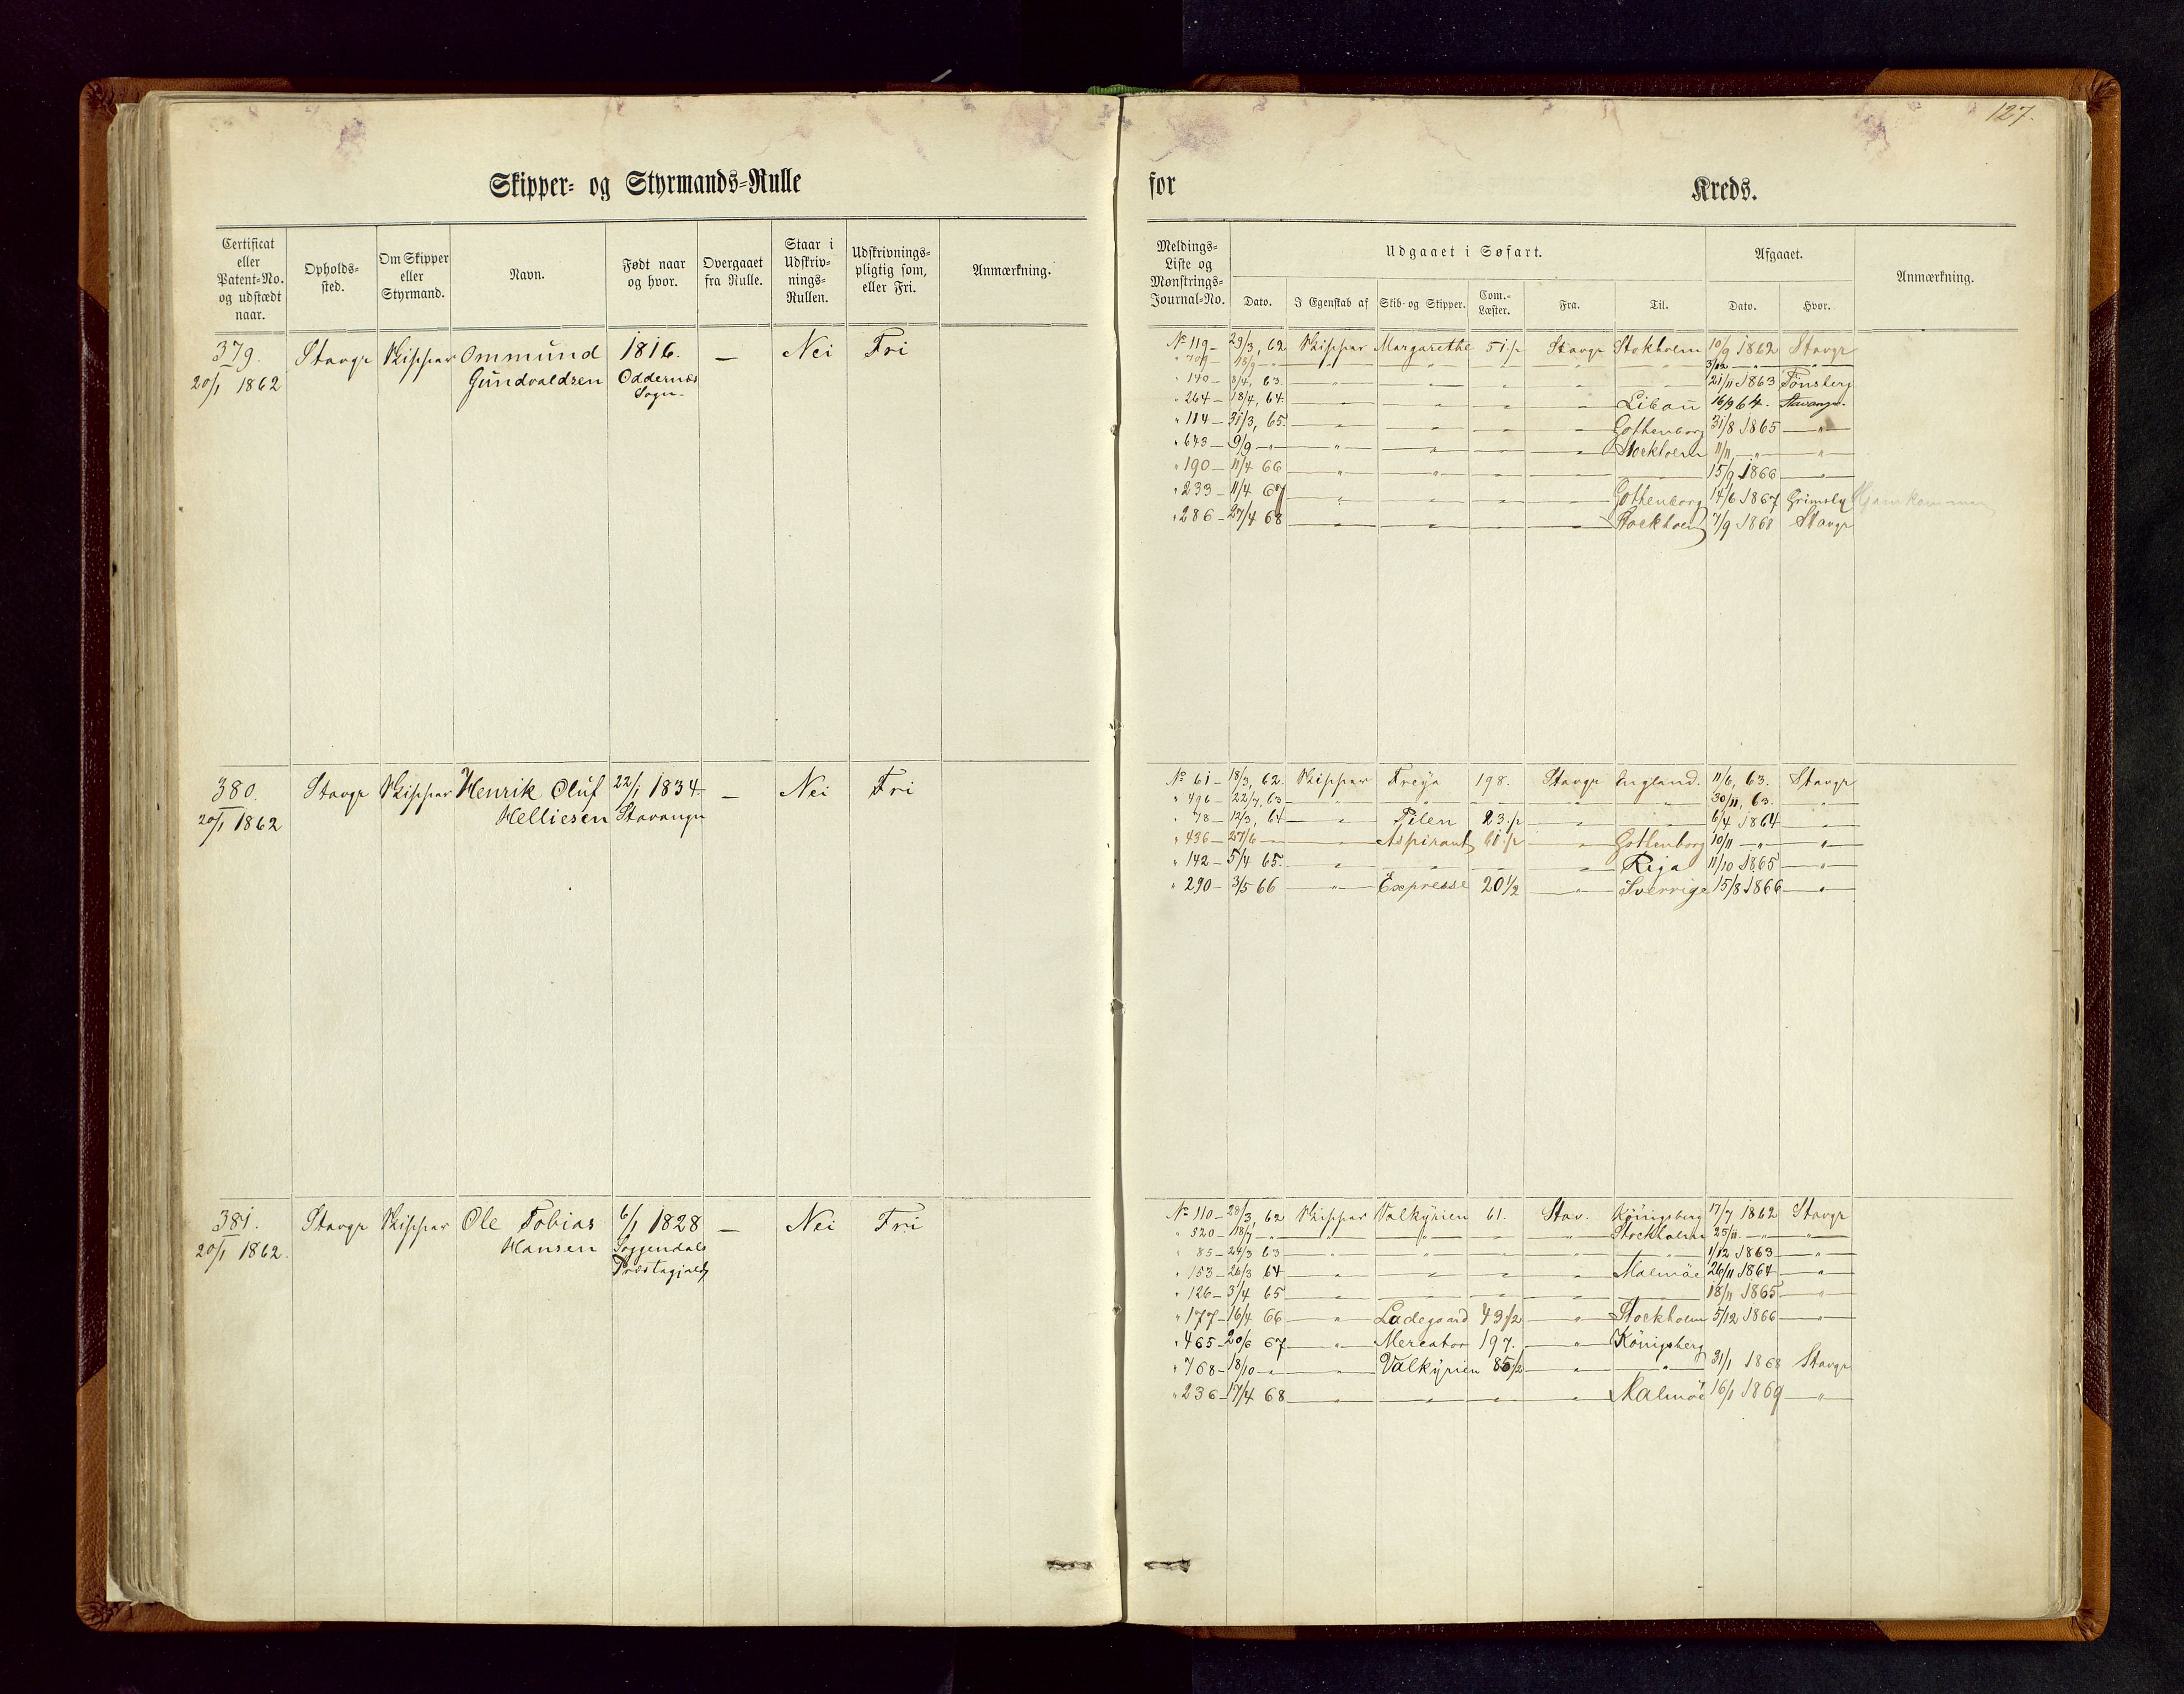 127.
Skipper- og Styrmands-Rulle
for Kreds.
Certificat eller Patent-No. og udstædt naar. | Opholds-sted. | Om Skipper eller Styrmand. | Navn. | Født naar og hvor. | Overgaaet fra Rulle. | Staar i Udskriv-nings-Rullen. | Udskrivnings-pligtig som, eller Fri. | Anmærkning.
Meldings-Liste og Mønstrings-Journal-No. | Udgaaet i Søfart. | Afgaaet. | Anmærkning.
Dato. | I Egenskab af | Skib- og Skipper. | Com.-Læster. | Fra. | Til. | Dato. | Hvor.
379. Stavgr Skipper Ommund 1816. — Nei Fri
20/1 1862 Gundvaldsen Oddernes
Sogn.
No 119 — 29/3, 62 Skipper Margarethe 51 ½ Stavgr Stokholm 10/9 1862 Stavgr
" 709 — 18/9 — " — " — " — " — " — " 3/12 — " — "
" 140 — 8/4, 63. — " — " — " — " — " 21/11 1863 Tønsberg
" 264 — 18/4, 64. — " — " — " — " — Libau 16/9 64. Stavanger.
" 114 — 31/3, 65. — " — " — " — " — Gothenborg 31/8 1865 — " —
" 643 — 9/9 — " — " — " — " — " — Stockholm 11/11 — " — "
" 190 — 11/4 66 — " — " — " — " — " 15/9 1866 — " —
" 233 — 11/4 67 — " — " — " — " — Gothenborg 14/6 1867 Grimsby Hjemkommen
" 286 — 27/4 68 — " — " — " — " — Stockholm 7/9 1868 Stavgr
380. Stavgr Skipper Henrik Oluf 22/1 1834 — Nei Fri
20/1 1862 Helliesen Stavanger
No 61 — 18/3, 62. Skipper Freya 198. Stavgr England. 11/6, 63. Stavgr
" 496 — 22/7, 63 — " — " — " — " — " 30/11, 63. — " —
" 78 — 12/3, 64 — " — Pilen 23 ½ — " — " — 6/4 1864 — " —
" 436 — 27/6 — " — Aspirant 61 ½ — " — Gothenborg 10/11 — " — "
" 142 — 5/4 65. — " — " — " — " — Riga 11/10 1865 — " —
" 290 — 3/5 66 — " — Expresse 20 1/2 — " — Sverrige 15/8 1866 — " —
381. Stavgr Skipper Ole Tobias 6/1 1828 — Nei Fri
20/1 1862. Hansen Soggendals
Præstegjæld
No 110 — 28/3, 62 Skipper Valkyrien 61. Stav. Königsberg 17/7 1862 Stavgr
" 520 — 18/7 — " — " — " — " — " Stockholm 25/11. — " — "
" 85 — 24/3 63 — " — " — " — " — " 1/12 1863 — " —
" 153 — 26/3 64 — " — " — " — " — Malmöe 26/11 1864 — " —
" 126 — 3/4 65 — " — " — " — " — " 18/11 1865 — " —
" 177 — 16/4 66 — " — Ladegaard 49 1/2 — " — Stockholm 5/12 1866 — " —
" 465 — 20/6 67 — " — Mercator 197. — " — Königsberg
" 768 — 18/10 — " — " — Valkyrien 85 1/2 — " — " 31/1 1868 Stavgr
" 236 — 17/4 68 — " — " — " — " — Malmöe 16/1 1869 — " —